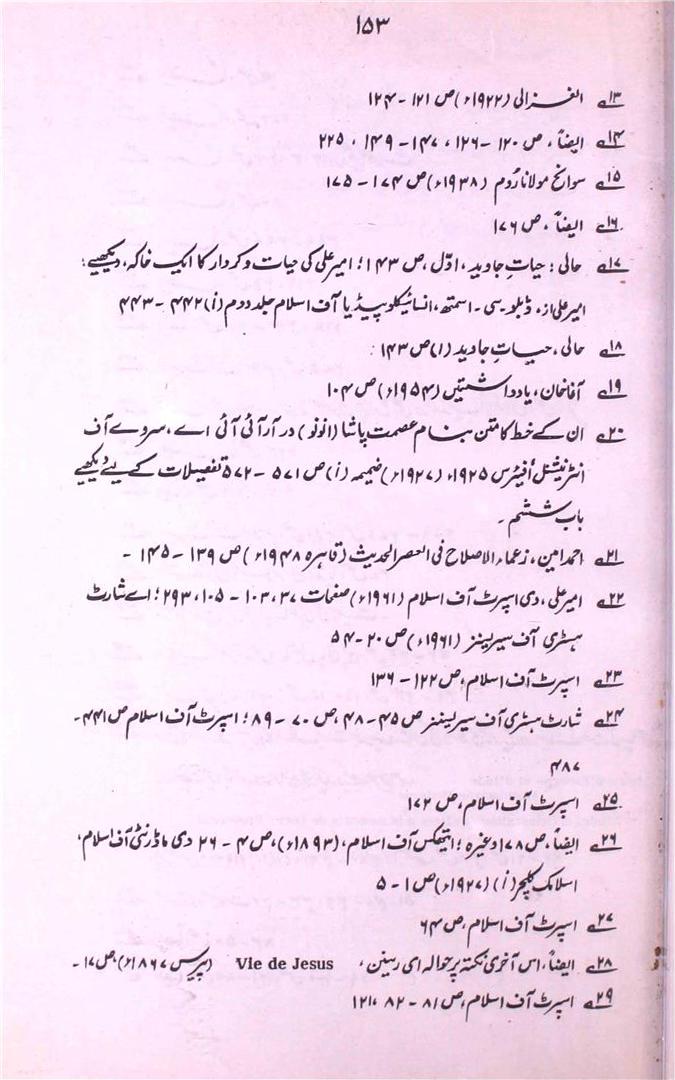 ۱۵۳
۱۳؎ الغزالی (۱۹۲۲ء) ص ۱۲۱ - ۱۲۴
۱۴؎ ایضاً، ص ۱۲۰ - ۱۲۶، ۱۴۷ - ۱۴۹، ۲۲۵
۱۵؎ سوانح مولانا رُوم (۱۹۳۸ء) ص ۱۷۴ - ۱۷۵
۱۶؎ ایضاً، ص ۱۷۶
۱۷؎ حالی: حیاتِ جاوید، اوّل، ص ۱۴۳؛ امیر علی کی حیات و کردار کا ایک خاکہ، دیکھیے:
امیر علی از، ڈبلو سی۔ اسمتھ، انسائیکلو پیڈیا آف اسلام جلد دوم (i) ۴۴۲ - ۴۴۳
۱۸؎ حالی، حیاتِ جاوید (۱) ص ۱۴۳
۱۹؎ آغا خان، یادداشتیں (۱۹۵۴ء) ص ۱۰۴
۲۰؎ ان کے خط کا متن بنام عصمت پاشا (انونو) در آر آئی آئی اے، سروے آف
انٹرنیشنل افیئرس ۱۹۲۵ء (۱۹۲۷ء) ضمیمہ (i) ص ۵۷۱ - ۵۷۲ تفصیلات کے لیے دیکھیے
باب ششم۔
۲۱؎ احمد امین، زعماء الاصلاح فی العصر الحدیث (قاہرہ ۱۹۴۸ء) ص ۱۳۹ - ۱۴۵ -
۲۲؎ امیر علی، دی اسپرٹ آف اسلام (۱۹۶۱ء) صفحات ۳، ۱۰۳ - ۱۰۵، ۲۹۳؛ اے شارٹ
ہسٹری آف سیریسنز (۱۹۶۱ء) ص ۲۰ - ۵۴
۲۳؎ اسپرٹ آف اسلام، ص ۱۲۲ - ۱۳۶
۲۴؎ شارٹ ہسٹری آف سیریسنز ص ۴۵ - ۴۸، ص ۷۰ - ۸۹؛ اسپرٹ آف اسلام ص ۴۴۱ -
۴۸۷
۲۵؎ اسپرٹ آف اسلام، ص ۱۷۲
۲۶؎ ایضاً، ص ۱۷۸ وغیرہ؛ ایتھکس آف اسلام، (۱۸۹۳ء)، ص ۴ - ۲۶ دی ماڈرنٹی آف اسلام،
اسلامک کلچر (i) (۱۹۲۷ء) ص ۱ - ۵
۲۷؎ اسپرٹ آف اسلام، ص ۶۴
۲۸؎ ایضاً، اس آخری نکتہ پر حوالہ ای رینن، Vie de Jesus (پیرس ۱۸۶۷ء)، ص ۱۷ -
۲۹؎ اسپرٹ آف اسلام، ص ۸۱ - ۸۲، ۱۲۱